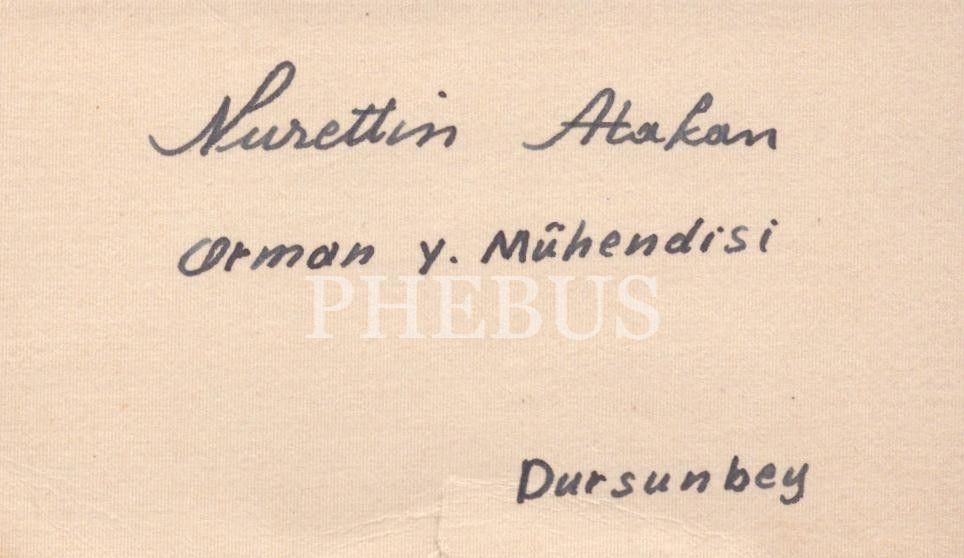 Nurettin Atakan
Orman Y. Mühendisi
PHEBUS
Dursunbey